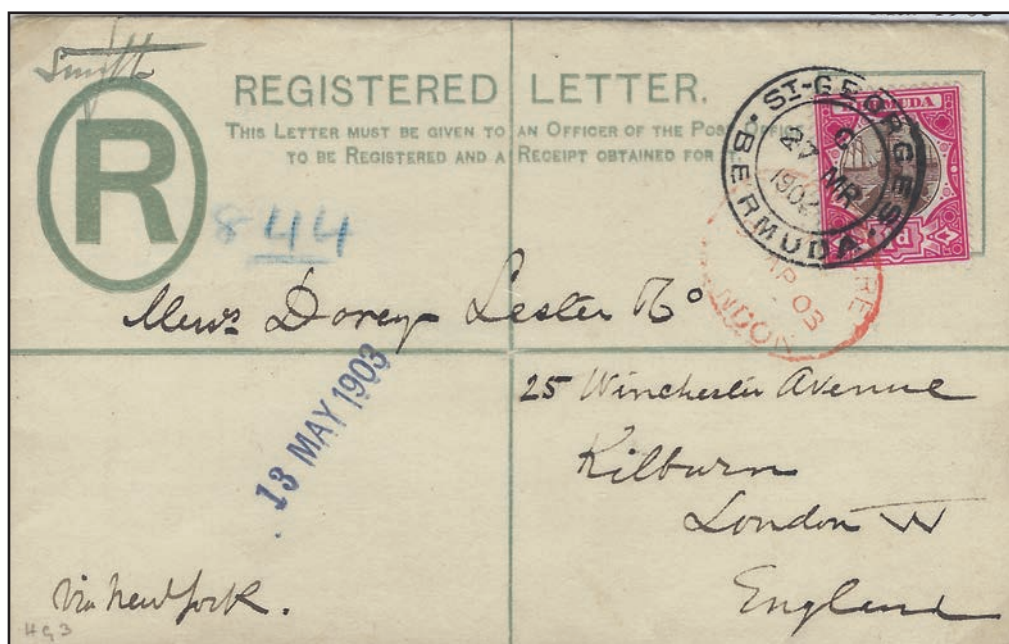 R
REGISTERED LETTER.
THIS LETTER MUST BE GIVEN TO AN OFFICER OF THE POST OFFICE
TO BE REGISTERED AND A RECEIPT OBTAINED FOR
844
ST. GEORGES
C
27 MR
1902
BERMUDA
BERMUDA
03
LONDON
Messrs Dorey Lester & Co
25 Winchester Avenue
Kilburn
London W
England
13 MAY 1903
Via New York.
HG3